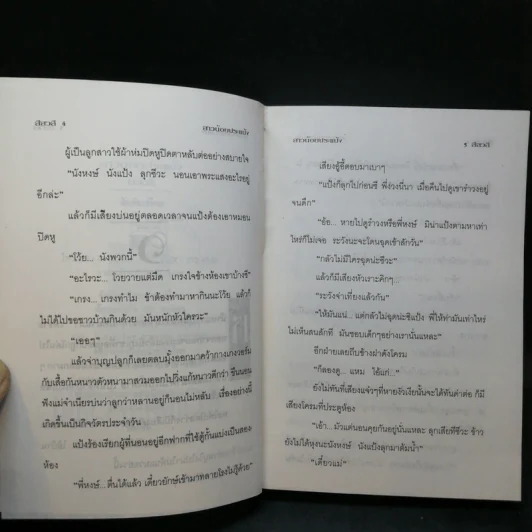 สีสวลี ๘
สาวน้อยประแป้ง
ผู้เป็นลูกสาวใช้ผ้าห่มปิดหูปิดตาหลับต่ออย่างสบายใจ
“นังหงษ์ นังแป้ง ลุกซีวะ นอนเอาพระแสงอะไรอยู่
อีกล่ะ”
แล้วก็มีเสียงบ่นอยู่ตลอดเวลาจนแป้งต้องเอาหมอน
ปิดหู
“โว้ย... นังพวกนี้”
“อะไรวะ... โวยวายแต่มืด เกรงใจข้างห้องเขาบ้างซี”
“เกรง... เกรงทำไม ข้าต้องทำมาหากินนะโว้ย แล้วก็
ไม่ได้ไปขอชาวบ้านกินด้วย มันหนักหัวใครวะ”
“เออๆ”
แล้วจ่าบุญปลูกก็เลยตลบมุ้งออกมาคว้ากางเกงวอร์ม
กับเสื้อกันหนาวตัวหนามาสวมออกไปวิ่งแก้หนาวดีกว่า ขืนนอน
ฟังแม่จำเนียรบ่นว่าลูกกว่าหลานอยู่ก็นอนไม่หลับ... เรื่องอย่างนี้
เกิดขึ้นเป็นกิจวัตรประจำวัน
แป้งร้องเรียกผู้ที่นอนอยู่อีกฟากที่ใช้ตู้กั้นแบ่งเป็นสอง
ห้อง
“พี่หงษ์...ตื่นได้แล้ว เดี๋ยวยักษ์เข้ามาทลายโลงไม่รู้ด้วย”
สาวน้อยประแป้ง
๙ สีสวลี
เสียงอู้อี้ตอบมาเบาๆ
“แป้งก็ลุกไปก่อนซี พี่ง่วงนี่นา เมื่อคืนไปดูเขารำวงอยู่
จนดึก”
“อ้อ... หายไปดูรำวงหรือพี่หงษ์ มิน่าแป้งตามหาเท่า
ไหร่ก็ไม่เจอ ระวังนะจะโดนฉุดเข้าสักวัน”
“กลัวไม่มีใครฉุดน่ะซีวะ”
แล้วก็มีเสียงหัวเราะคิกๆ...
“ระวังจ่าเที่ยงแล้วกัน”
“ให้มันแน่... แต่กลัวไม่ฉุดน่ะซิแป้ง พี่ให้ท่ามันเท่าไหร่
ไม่เห็นสนสักที มันชอบเด็กๆอย่างเรานั่นแหละ”
อีกฝ่ายเลยถีบข้างฝาดังโครม
“ก็ลองดู... แหม ไอ้แก่”
ยังไม่ทันที่เสียงแจ๋วๆที่หายงัวเงียนั้นจะได้ทันด่าต่อ ก็มี
เสียงโครมที่ประตูห้อง
“เอ้า... มัวแต่นอนคุยกันอยู่นั่นแหละ ลุกเสียทีซีวะ ข้าว
ยังไม่ได้หุงนะนังหงษ์ นังแป้งลุกมาต้มน้ำ”
“เดี๋ยวแม่”